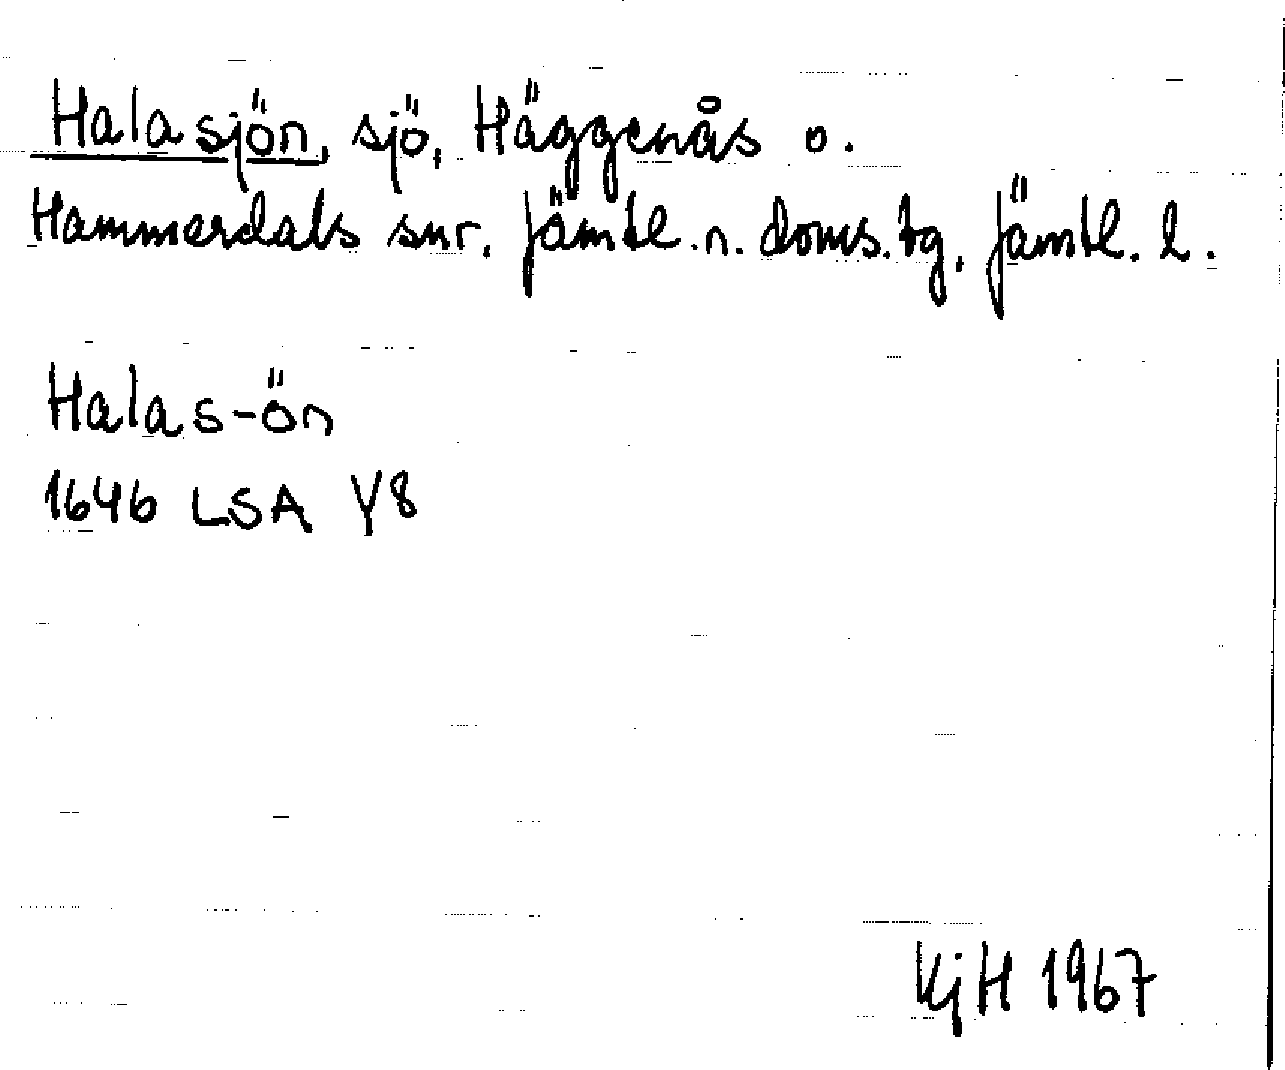 Halasjön, sjö, Häggenås o.
Hammerdals snr. Jämtl. n. doms. tg, Jämtl. l.
Halas-ön
1646 LSA Y8
KjH 1967